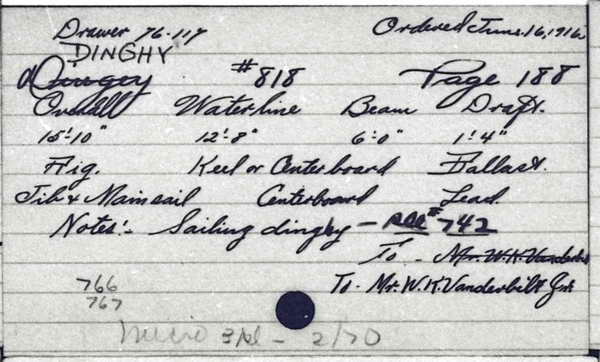 Drawer 76-117 Ordered June 16, 1916.
DINGHY
Dingey #818 Page 188
Overall Waterline Beam Draft.
15'-10" 12'-8" 6'-0" 1'-4"
Rig. Keel or Centerboard Ballast.
Jib & Mainsail Centerboard Lead.
Notes:- Sailing dinghy - see #742
To - Mr. W. K. Vanderbilt
766 To - Mr. W. K. Vanderbilt Jr.
767
micro - 2/70